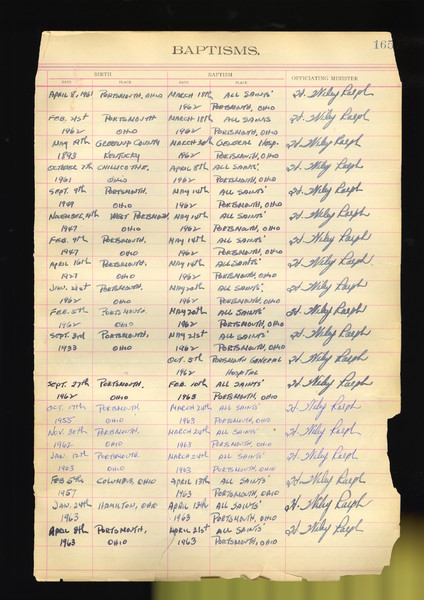 165
BAPTISMS.
BIRTH BAPTISM OFFICIATING MINISTER
DATE PLACE DATE PLACE
APRIL 8, 1961 PORTSMOUTH, OHIO MARCH 18th ALL SAINTS' H. Wiley Ralph
1962 PORTSMOUTH, OHIO
FEB. 21st PORTSMOUTH MARCH 18th ALL SAINTS H. Wiley Ralph
1962 OHIO 1962 PORTSMOUTH, OHIO
MAY 19th GREENUP COUNTY MARCH 30th GENERAL HOSP. H. Wiley Ralph
1893 KENTUCKY 1962 PORTSMOUTH, OHIO
OCTOBER 7th CHILLICOTHE, APRIL 8th ALL SAINTS' H. Wiley Ralph
1961 OHIO 1962 PORTSMOUTH, OHIO
SEPT. 9th PORTSMOUTH, MAY 14th ALL SAINTS' H. Wiley Ralph
1949 OHIO 1962 PORTSMOUTH, OHIO
NOVEMBER WEST PORTSMOUTH MAY 14th ALL SAINTS' H. Wiley Ralph
1947 OHIO 1962 PORTSMOUTH, OHIO
FEB. 9th PORTSMOUTH, MAY 14th ALL SAINTS' H. Wiley Ralph
1947 OHIO 1962 PORTSMOUTH, OHIO
APRIL 16th PORTSMOUTH, MAY 14th ALL SAINTS' H. Wiley Ralph
1927 OHIO 1962 PORTSMOUTH, OHIO
JAN. 21st PORTSMOUTH, MAY 20th ALL SAINTS' H. Wiley Ralph
1962 OHIO 1962 PORTSMOUTH, OHIO
FEB. 5th PORTSMOUTH MAY 20th ALL SAINTS' H. Wiley Ralph
1962 OHIO 1962 PORTSMOUTH, OHIO
SEPT. 3rd PORTSMOUTH, MAY 21st ALL SAINTS' H. Wiley Ralph
1933 OHIO 1962 PORTSMOUTH, OHIO
OCT. 5th PORTSMOUTH GENERAL H. Wiley Ralph
1962 HOSPITAL
SEPT. 27th PORTSMOUTH, FEB. 10th ALL SAINTS' H. Wiley Ralph
1962 OHIO 1963 PORTSMOUTH, OHIO
OCT. 17th PORTSMOUTH MARCH 24th ALL SAINTS' H. Wiley Ralph
1955 OHIO 1963 PORTSMOUTH, OHIO
NOV. 30th PORTSMOUTH, MARCH 24th ALL SAINTS' H. Wiley Ralph
1962 OHIO 1963 PORTSMOUTH, OHIO
JAN. 12th PORTSMOUTH MARCH 24th ALL SAINTS' H. Wiley Ralph
1963 OHIO 1963 PORTSMOUTH, OHIO
FEB 5th COLUMBUS, OHIO APRIL 13th ALL SAINTS' H. Wiley Ralph
1957 1963 PORTSMOUTH, OHIO
JAN. 24th HAMILTON, OHIO APRIL 13th ALL SAINTS' H. Wiley Ralph
1963 1963 PORTSMOUTH, OHIO
APRIL 8th PORTSMOUTH, APRIL 21st ALL SAINTS' H. Wiley Ralph
1963 OHIO 1963 PORTSMOUTH, OHIO